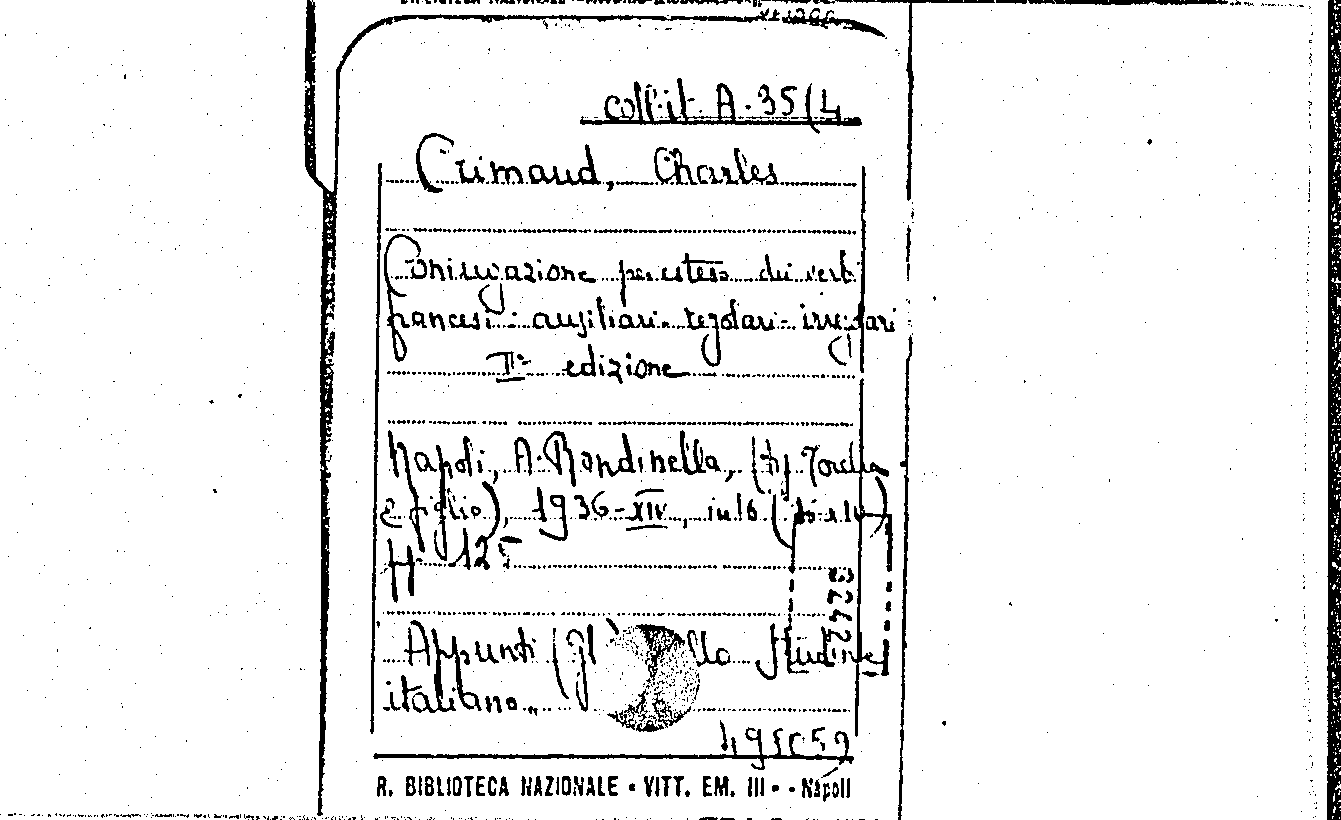 Coll. it A. 35 (4
Grimaud, Charles
Coniugazione per esteso dei verbi
francesi - ausiliari - regolari - irregolari
IIª edizione
Napoli, A. Rondinella, (tip. Torella
e figlio), 1936-XIV, in 16
pp. 125
Appunti (Gli) dello Studente
italiano.
3242
495059
R. BIBLIOTECA NAZIONALE - VITT. EM. III - - Napoli